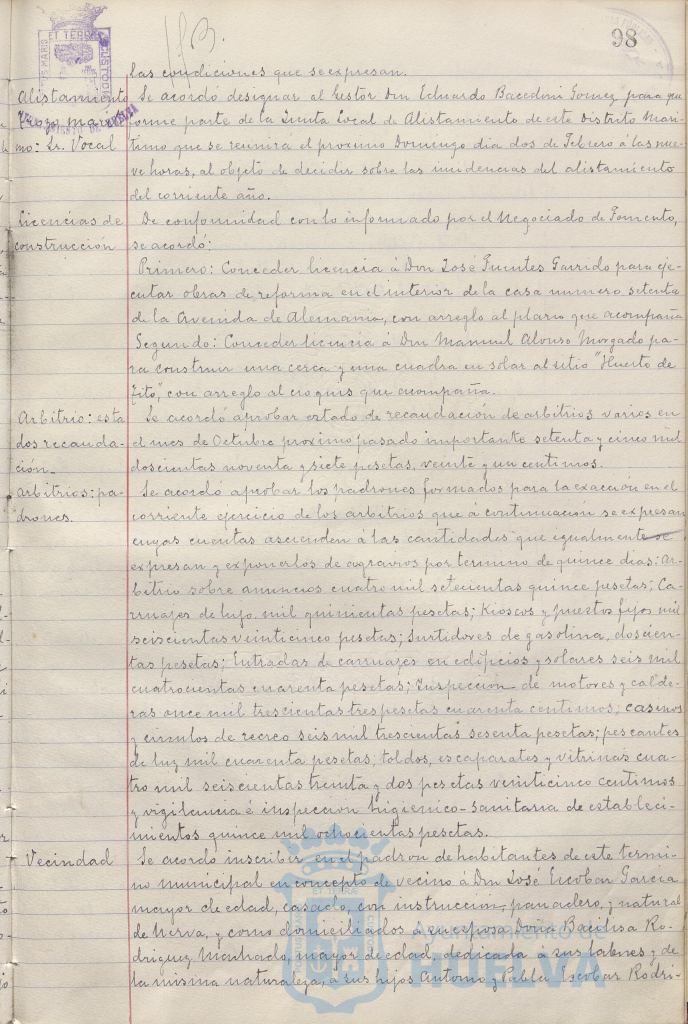 98
las condiciones que se expresan.
Alistamiento
mo: Sr. Vocal
Se acordó designar al Gestor Don Eduardo Gomez para que
forme parte de la Junta Local de Alistamiento de este Distrito Mari-
timo que se reunirá el proximo Domingo dia dos de Febrero á las nue-
ve horas, al objeto de decidir sobre las incidencias del alistamiento
del corriente año.
Licencias de
construcción
De conformidad con lo informado por el Negociado de Fomento,
se acordó:
Primero: Conceder licencia á Don José Fuentes Garrido para eje-
cutar obras de reforma en el interior de la casa numero setenta
de la Avenida de Alemania, con arreglo al plano que acompaña
Segundo: Conceder licencia á Don Manuel Alonso Morgado pa-
ra construir una cerca y una cuadra en solar al sitio "Huerto de
con arreglo al croquis que acompaña.
Arbitrio: esta
dos recauda-
ción.
Se acordó aprobar estado de recaudación de arbitrios varios en
el mes de Octubre proximo pasado importante setenta y cinco mil
doscientas noventa y siete pesetas, veinte y un centimos.
Arbitrios: pa-
drones.
Se acordó aprobar los padrones formados para la exacción en el
corriente ejercicio de los arbitrios que á continuación se expresan
cuyas cuentas ascienden á las cantidades que igualmente se
expresan y exponerlos de agravios por termino de quince dias: Ar-
bitrio sobre anuncios cuatro mil setecientas quince pesetas; Ca-
rruajes de lujo, mil quinientas pesetas; Kioscos y puestos fijos mil
seiscientas veinticinco pesetas; Surtidores de gasolina, doscien-
tas pesetas; Entradas de carruajes en edificios y solares seis mil
cuatrocientas cuarenta pesetas; Inspección de motores y calde-
ras once mil trescientas tres pesetas cuarenta centimos; casinos
y circulos de recreo seis mil trescientas sesenta pesetas; pescantes
de luz mil cuarenta pesetas; toldos, escaparates y vitrinas cua-
tro mil seiscientas treinta y dos pesetas veinticinco centimos
y vigilancia é inspección higienico-sanitaria de estableci-
mientos quince mil ochocientas pesetas.
Vecindad
Se acordó inscribir en el padron de habitantes de este termi-
no municipal en concepto de vecino á Don José Escobar Garcia
mayor de edad, casado, con instruccion, panadero, y natural
de Nerva, y como domiciliados á su esposa Doña Basilisa Ro-
driguez Machado, mayor de edad, dedicada á sus labores y de
la misma naturaleza, á sus hijos Antonio y Pablo Escobar Rodri-
Ayuntamiento de
HUELVA